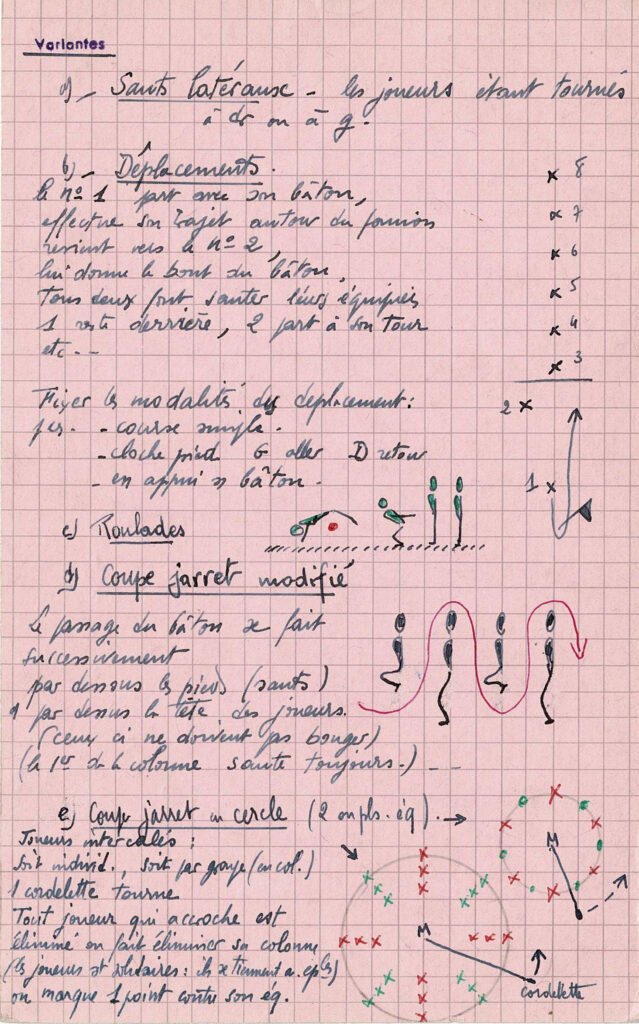 Variantes
a) - Sauts latéraux - les joueurs étant tournés
à dr ou à g.
b) - Déplacements.
le nº 1 part avec son bâton,
effectue son trajet autour du fanion
revient vers le nº 2,
lui donne le bout du bâton,
Tous deux font sauter leurs équipiers
1 reste derrière, 2 part à son tour
etc - -
8
7
6
5
4
3
2
1
Fixer les modalités du déplacement :
- course simple.
- cloche pied G aller D retour
- en appui s bâton.
c) Roulades
d) Coupe jarret modifié
Le passage du bâton se fait
successivement
par dessous les pieds (sauts)
par dessus la tête des joueurs.
(ceux ci ne doivent pas bouger)
(le 1er de la colonne saute toujours.) - - -
e) Coupe jarret en cercle (2 ou pls. éq).
Joueurs intercalés :
soit individ., soit par groupe (en col.)
1 cordelette tourne
Tout joueur qui accroche est
éliminé ou fait éliminer sa colonne
(les joueurs st solidaires : ils se tiennent a.)
on marque 1 point contre son éq.
M
M
cordelette